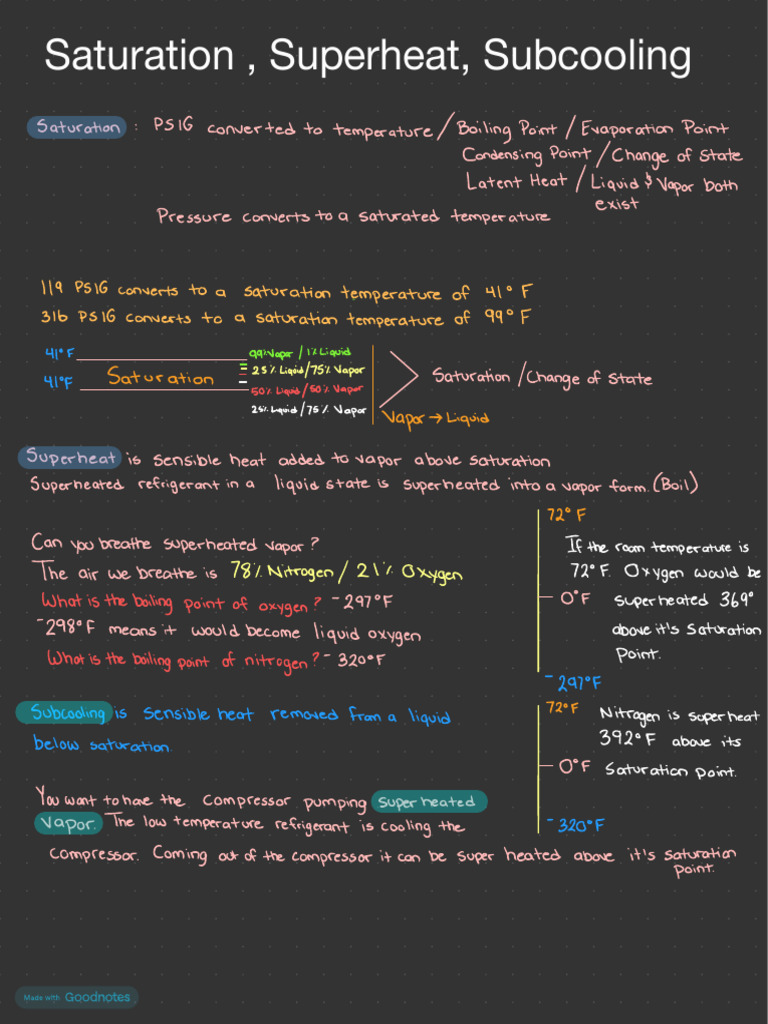 Saturation , Superheat, Subcooling
Saturation : PSIG converted to temperature / Boiling Point / Evaporation Point
Condensing Point / Change of State
Latent Heat / Liquid & Vapor both
exist
Pressure converts to a saturated temperature
119 PSIG converts to a saturation temperature of 41° F
316 PSIG converts to a saturation temperature of 99° F
41°F
99% Vapor / 1% Liquid
25% Liquid / 75% Vapor
41°F
Saturation
50% Liquid / 50% Vapor
25% Liquid / 75% Vapor
Saturation / Change of State
Vapor → Liquid
Superheat is sensible heat added to vapor above saturation
Superheated refrigerant in a liquid state is superheated into a vapor form. (Boil)
Can you breathe superheated vapor?
The air we breathe is 78% Nitrogen / 21% Oxygen
What is the boiling point of oxygen? -297°F
-298°F means it would become liquid oxygen
What is the boiling point of nitrogen? -320°F
72° F
If the room temperature is
72°F. Oxygen would be
0°F superheated 369°
above it's Saturation
Point.
-297°F
Subcooling is sensible heat removed from a liquid
below saturation.
72°F Nitrogen is superheat
392°F above its
0°F Saturation point.
-320°F
You want to have the compressor pumping superheated
vapor. The low temperature refrigerant is cooling the
compressor. Coming out of the compressor it can be super heated above it's saturation
point.
Made with Goodnotes